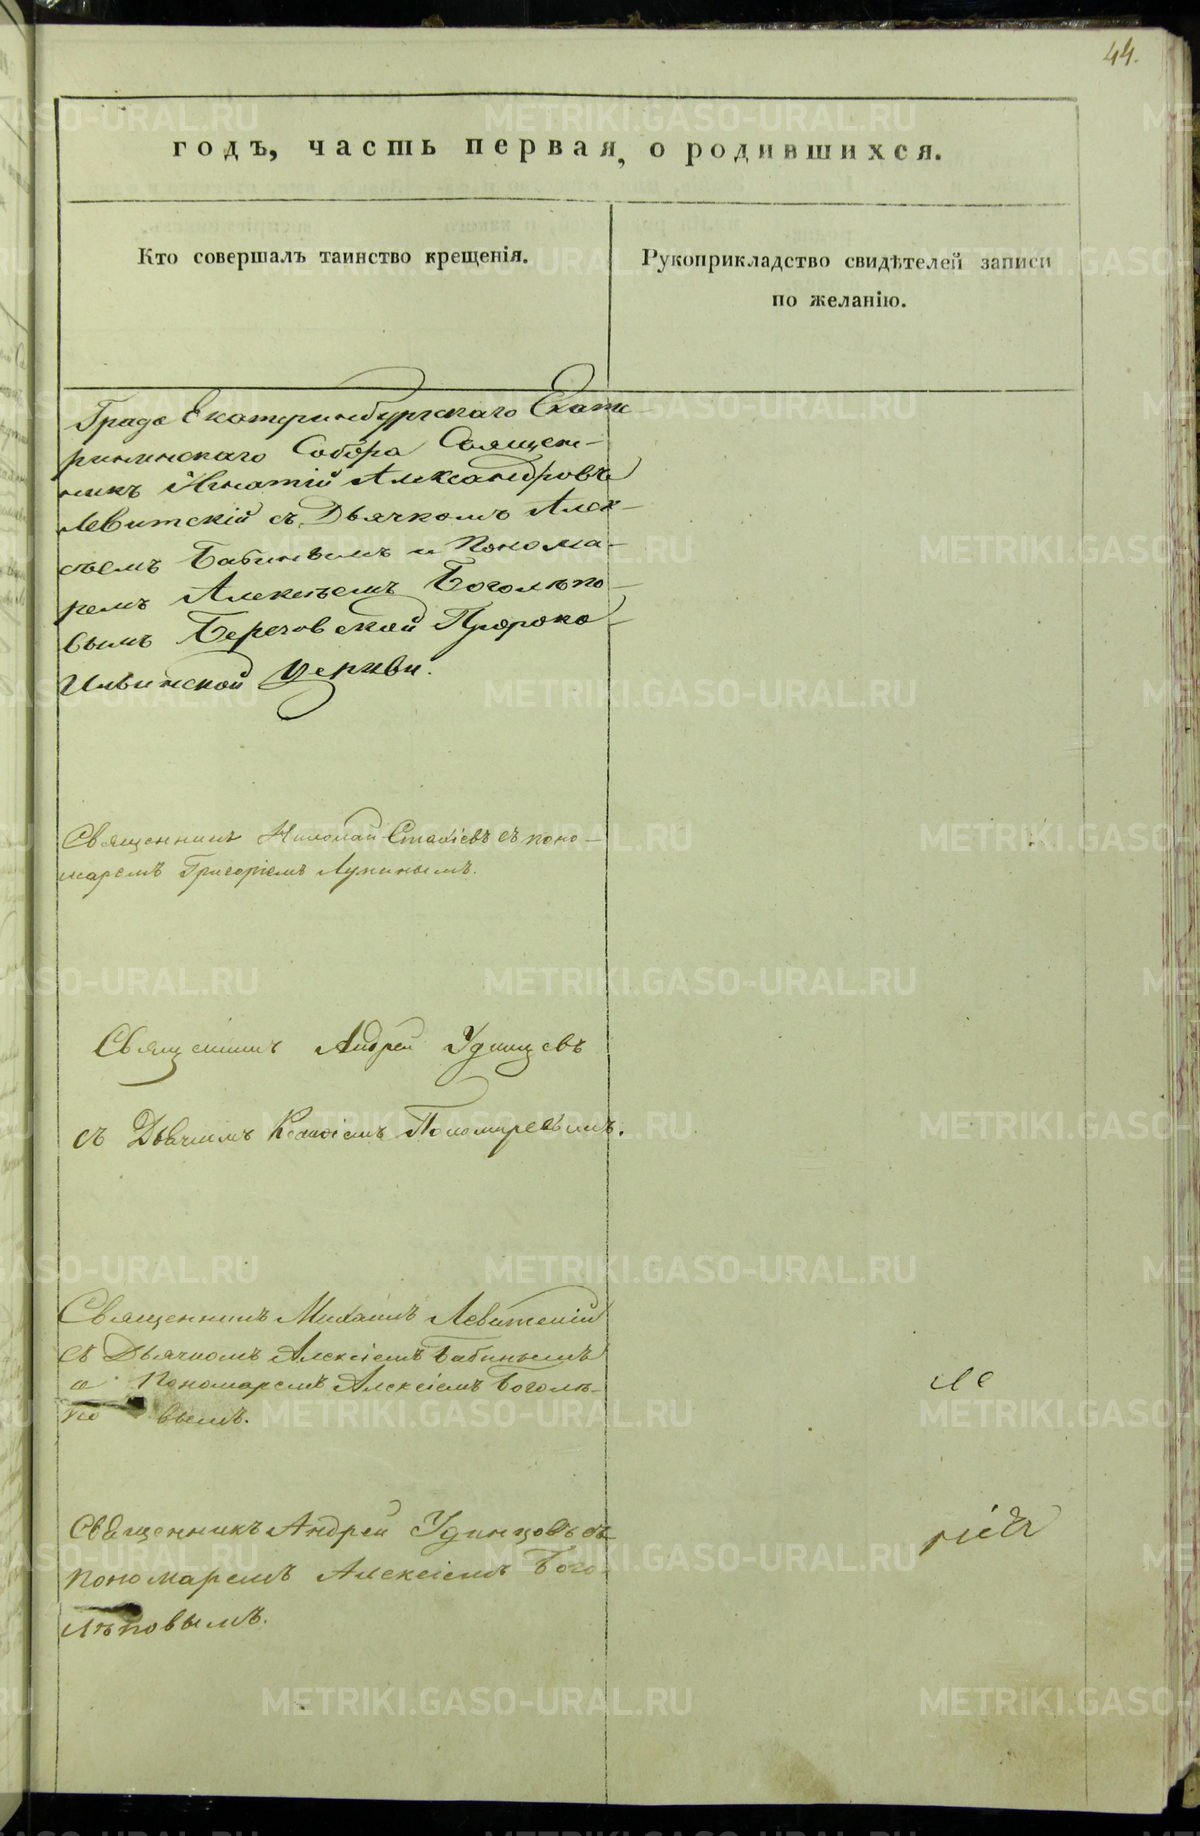 44.
годъ, часть первая, о родившихся.
Кто совершалъ таинство крещенія.
Рукоприкладство свидѣтелей записи
по желанію.
Града Екатеринбургскаго Екате-
рининскаго Собора Священ-
никъ Игнатій Александровъ
Левитскій съ Дьячкомъ Алек-
сѣемъ Бабинымъ и Понома-
ремъ Алексѣемъ Боголѣпо-
вымъ Березовской Пророко-
Ильинской Церкви.
Священникъ Николай Стахіевъ съ поно-
маремъ Григоріемъ Лукинымъ.
Священникъ Андрей Удинцевъ
съ Дьячкомъ Пономаревымъ.
Священникъ Михаилъ Левитскій
съ Дьячкомъ Алексіемъ Бабинымъ
и Пономаремъ Алексіемъ Боголѣ-
по вымъ.
Священникъ Андрей Удинцовъ съ
пономаремъ Алексіемъ Бого-
лѣповымъ.
METRIKI.GASO-URAL.RU